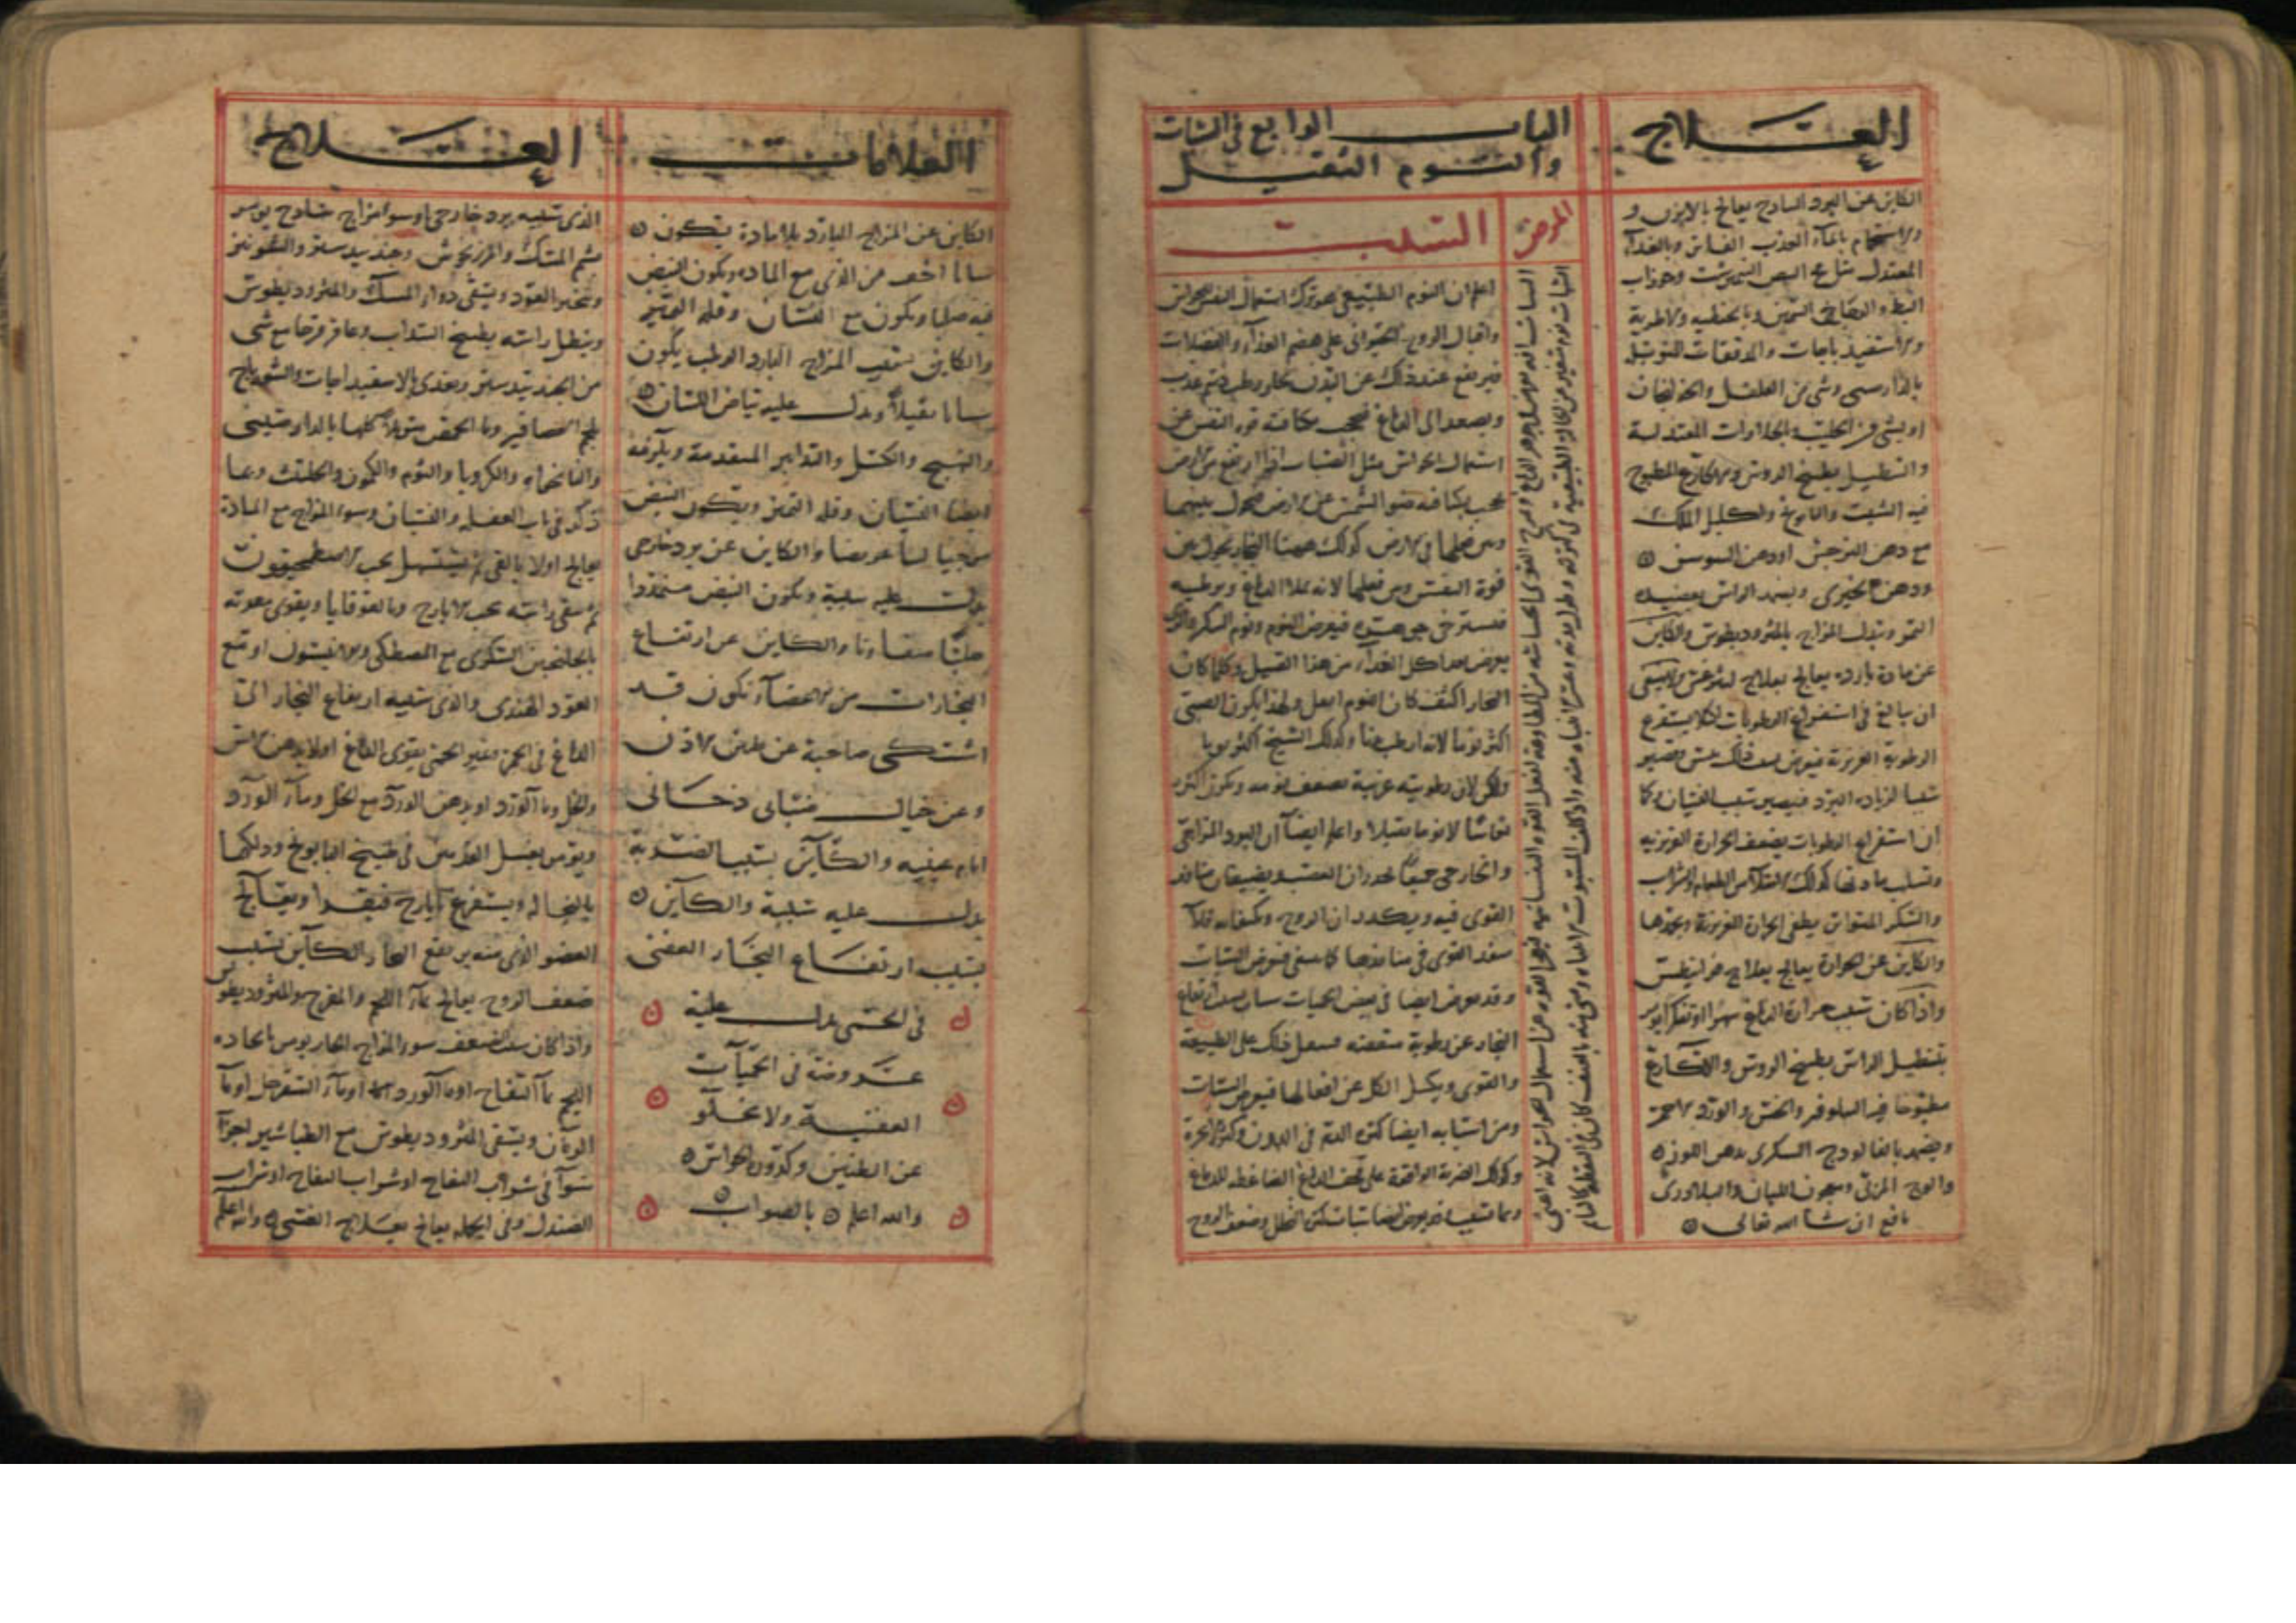 العلاج
الكاين عن البرد الساذج يعالج بالابزن و
والاستحمام بالماء العذب الفاتر وبالغذاء
المعتدل مثل مح البيض النيمرشت وجوذاب
البط والدجاج السمين وبالحنطيه والاطرية
والاسفيذباجات والمدققات المتوبلة
بالدارصيني وشي من الفلفل والخولنجان
او بشي من الحلبة والحلاوات المعتدلة
والتنطيل بطبيخ الروس والاكارع المطبوخ
فيه الشبت والبابونج واكليل الملك
مع دهن النرجس او دهن السوسن
ودهن الخيري ويضمد الراس بعصيدة
التمر وتبدل المزاج بالمثروديطوس والكاين
عن مادة بارده يعالج بعلاج ليثرغس ولا ينبغي
ان يبالغ في استفراغ الرطوبات لئلا يستفرغ
الرطوبة الغريزية فيعرض بعد ذلك يبس ويصير
سببا لزيادة البرد فيصير سبب النسيان وكما
ان استفراغ الرطوبات يضعف الحرارة الغريزيه
وتسلب مادتها كذلك الامتلاء من الطعام والشراب
والسكر المتواتر يطفي الحرارة الغريزية ويخمدها
والكاين عن الحرارة يعالج بعلاج قرانيطس
واذا كان سبب حرارة الدماغ سهرا او تفكرا يومر
بتنطيل الراس بطبيخ الروس والاكارع
مطبوخا فيه النيلوفر والخس والورد الاحمر
ويضمد بالفالوذج السكري بدهن اللوز
والوج المربى ومعجون اللبان والبلاذري
نافع ان شا الله تعالى
الباب الرابع في السبات
والنوم الثقيل
المرض
السبب
السبات نوم متغير عن الحالة الطبيعية في كثرته وطول مدته وعسر الانتباه منه
اعلم ان النوم الطبيعي هو ترك استعمال النفس الحواس
واقبال الروح الحيواني على هضم الغذاء والفضلات
فيرتفع عند ذلك عن البدن بخار رطب دسم عذب
ويصعد الى الدماغ فيحجب بكثافته قوة النفس عن
استعمال الحواس مثل الضباب اذا ارتفع من الارض
يحجب بكثافته ضو الشمس عن الارض فيحول بينهما
وبين فعلها في الارض كذلك هيهنا البخار يحول بين
قوة النفس وبين فعلها لانه يملا الدماغ ويرطبه
فيسترخي جوهره فيعرض النوم ونوم السكر والذي
يعرض بعد اكل الغذاء من هذا القبيل وكلما كان
البخار اكثف كان النوم اثقل ولهذا يكون الصبي
اكثر نوما لانه ارطب بدنا وكذلك الشيخ اكثر نوما
ولكن لان رطوبته غريبة يضعف نومه ويكون اكثره
نعاسا لا نوما ثقيلا واعلم ايضا ان البرد المزاجي
والخارجي جميعا يخدران العصب ويضيقان منافذ
القوى فيه ويكدران الروح ويكثفانه فلا
تنفذ القوى في منافذها كما ينبغي فيعرض السبات
وقد يعرض ايضا في بعض الحميات سبات بسبب ارتفاع
البخار عن رطوبة متعفنه فيثقل ذلك على الطبيعة
والقوى ويكسل الكل عن افعالها فيعرض السبات
ومن اسبابه ايضا كثرة الدم في البدن وكثرة الابخرة
وكذلك الضربة الواقعة على قحف الدماغ الضاغطه للدماغ
العلامات
الكاين عن المزاج البارد بلا مادة يكون
سباتا اخف من الذي مع الماده ويكون النبض
فيه صلبا ويكون مع النسيان وقلة التمييز
والكاين بسبب المزاج البارد الرطب يكون
سباتا ثقيلا ويدل عليه بياض اللسان
والتهيج والكسل والتدابير المتقدمة ويلزمه
ايضا النسيان وقلة التمييز ويكون النبض
موجيا لينا عريضا والكاين عن برد خارجي
يدل عليه سببه ويكون النبض متمددا
صلبا متفاوتا والكاين عن ارتفاع
البخارات من الاعضاء تكون قد
اشتكى صاحبه عن طنين الاذن
وعن خيال ضبابي دخاني
امام عينيه والكاين بسبب الضربة
يدل عليه سببه والكاين
بسبب ارتفاع البخار العفني
في الحمى يدل عليه
عروضه في الحميات
العفنية ولا يخلو
عن الطنين وكدورة الحواس
والله اعلم بالصواب
العلاج
الذي سببه برد خارجي او سو مزاج ساذج يومر
بشم المسك والمرزنجوش وجندبيدستر والشونيز
وتبخير العود ويسقى دواء المسك والمثروديطوس
وينطل راسه بطبيخ السذاب وعاقرقرحا مع شي
من الجندبيدستر ويغذى بالاسفيذباجات والشورباج
بلحم العصافير وما الحمص متبولا كلها بالدارصيني
والنانخواه والكرويا والثوم والكمون والحلتيت وبما
ذكر في باب العضله والنسيان وسوء المزاج مع المادة
يعالج اولا بالقي ثم يستسهل بحب الاصطمخيقون
ثم ينقى راسه بحب الايارج وبالقوقايا ويقوى معدته
بالجلنجبين السكري مع المصطكي والافيتمون او مع
العود الهندي والذي سببه ارتفاع البخار الى
الدماغ في الحمى وغير الحمى يقوى الدماغ اولا بدهن الاس
والخل وما الورد او بدهن الورد مع الخل وماء الورد
ويومر بغسل القدمين في طبيخ البابونج ودلكهما
بالنخالة ويستفرغ بايارج فيقرا ويعالج
العضو الذي منه يرتفع البخار والكاين بسبب
ضعف الروح يعالج بماء اللحم والمفرح والمثروديطوس
واذا كان سبب الضعف سوء المزاج الحار يومر باتخاذه
اللحم بماء التفاح او ماء الورد او ماء السفرجل او ماء
الرمان ويسقى المثروديطوس مع الطباشير اجزاء
سواء في شراب التفاح او شراب
الصندل وفي الجمله يعالج بعلاج الغشي والله اعلم